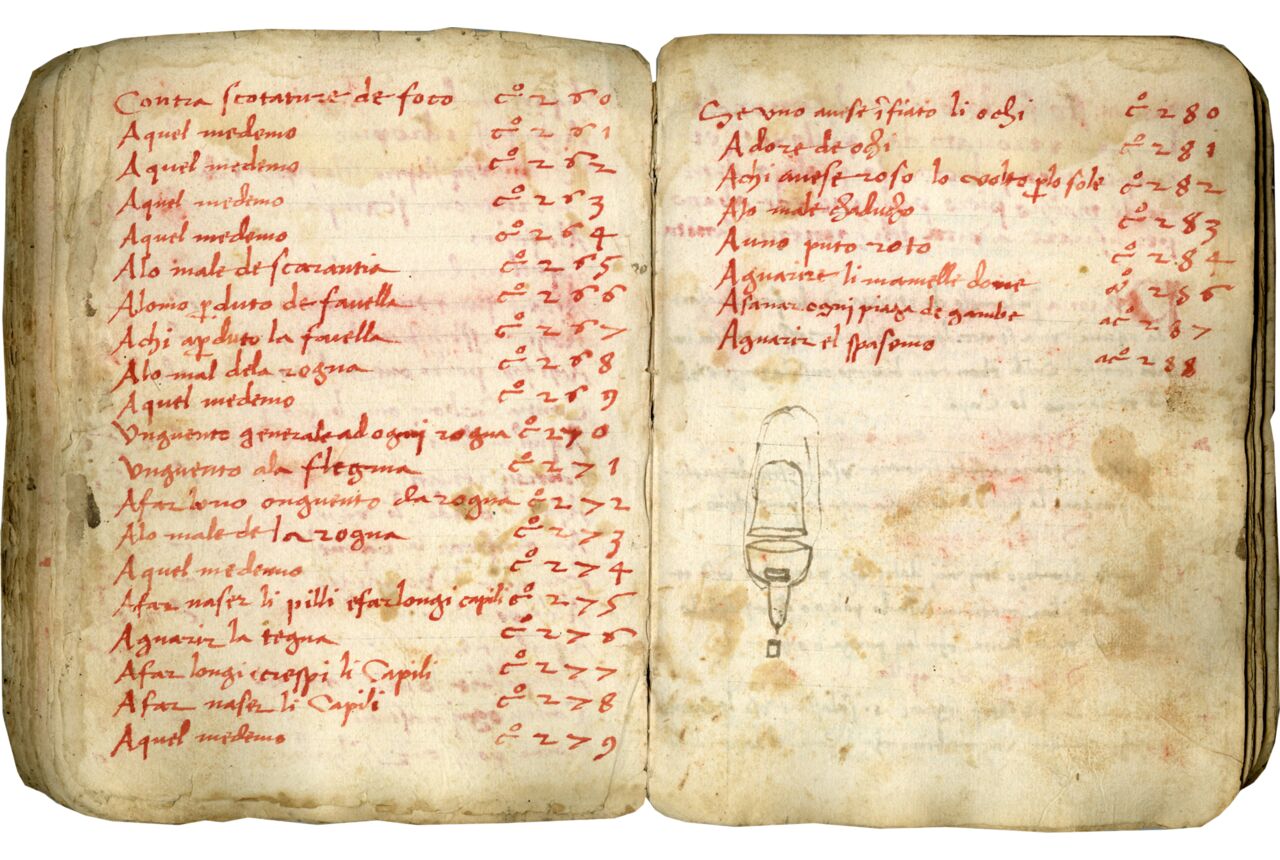 Contra scotature de foco cº 260
Aquel medemo cº 261
Aquel medemo cº 262
Aquel medemo cº 263
Aquel medemo cº 264
Alo male de scarantia cº 265
Alomo ꝑduto de favella cº 266
Achi aꝑduto la favella cº 267
Alo mal dela rogna cº 268
Aquel medemo cº 269
Unguento generale ad ogni rogna cº 270
Unguento ala flegma cº 271
Afar onguento da rogna cº 272
Alo male de la rogna cº 273
Aquel medemo cº 274
Afar naser li pilli efar longi capili cº 275
Aguarir la tegna cº 276
Afar longi crespi li Capili cº 277
Afar naser li Capili cº 278
Aquel medemo cº 279
Se uno avese ĩfiato li ochi cº 280
Adore de ochi cº 281
Achi avese roso lo volto ꝑ lo sole cº 282
Alo male cº 283
Auno puto roto cº 284
Aguarire li mamelle done cº 286
Asanar ogni piaga de gambe acº 287
Aguarir el spasemo acº 288